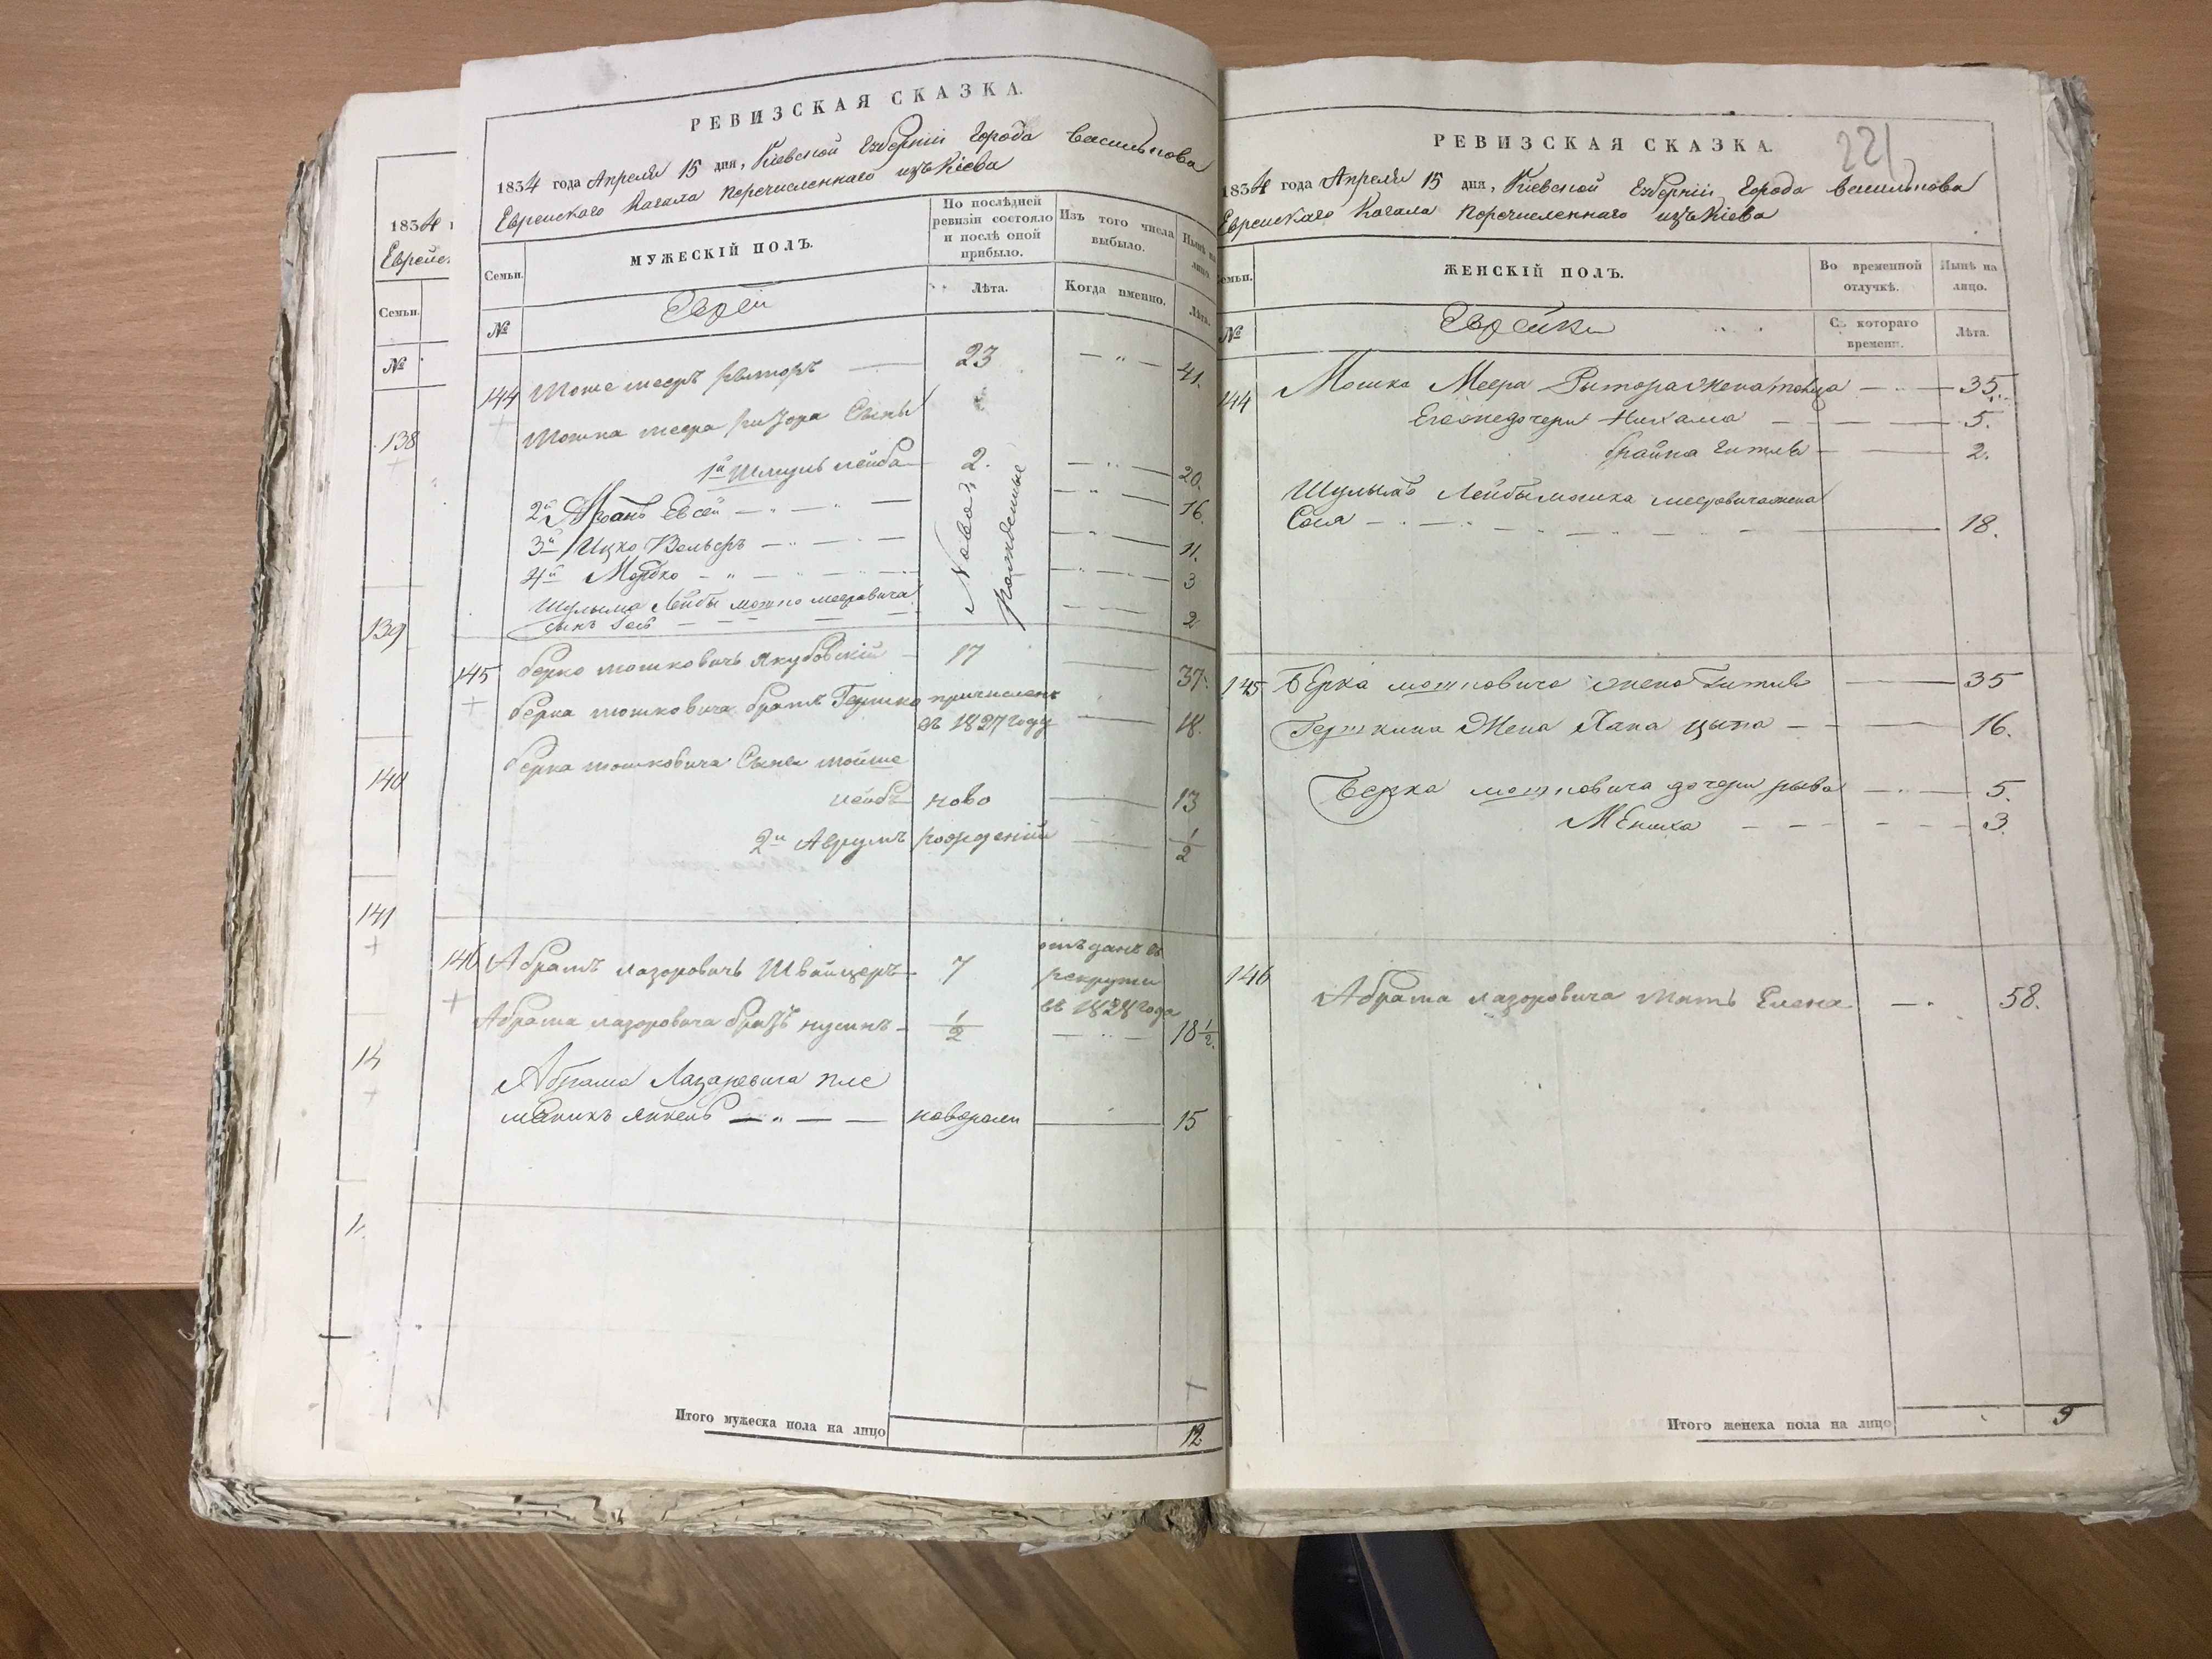 1834
Еврейс
Семьи.
№
138
139
140
141
14
1
РЕВИЗСКАЯ СКАЗКА.
1834 года Апреля 15 дня, Кіевской Губерніи Города Василькова
Еврейскаго Кагала перечисленнаго изъ Кіева
Семьи. МУЖЕСКІЙ ПОЛЪ. По послѣдней ревизіи состояло и послѣ оной прибыло. Изъ того числа выбыло. Нынѣ на лицо.
№ Еврей Лѣта. Когда именно. Лѣта.
144 Мошке Мееръ 23 — " — 41.
Мошка Меера Сыны
1й Шлиумъ Лейба 2. 20.
2й Евсей — " — Ново 16.
3й Ицко Вольфъ — " — рожденные 11.
4й Мордко — " — 3
Шулыма Лейбы Мошко Мееровича
сынъ 2
145 Берко Мошковичъ Якубовскій 17 37.
Берка Мошковича братъ Гершко причисленъ
въ 1827 году 18.
Берка Мошковича Сыны Мойше
Лейбъ ново 13
2й Аврумъ рожденій 1/2
146 Абрамъ Лазоровичъ Швайцеръ 7 отъданъ въ
рекруты
въ 1828 года
Абрама Лазоровича братъ Нусинъ 1/2 18 1/2.
Абрама Лазаревича пле
маникъ Янкель — " — новорожн 15
Итого мужеска пола на лицо 12
221
РЕВИЗСКАЯ СКАЗКА.
1834 года Апреля 15 дня, Кіевской Губерніи Города Василькова
Еврейскаго Кагала перечисленнаго изъ Кіева
Семьи. ЖЕНСКІЙ ПОЛЪ. Во временной отлучкѣ. Нынѣ на лицо.
№ Еврейки Съ котораго времени. Лѣта.
144 Мошка Меера Рытора жена 35.
Его же дочери Нихама 5.
Брайна Гитля 2.
Шулыма Лейбы Мошка Мееровича жена
Сося 18.
145 Берка Мошковича жена Гитля 35
Гершкина Жена Хана Цыпа — 16.
Берка Мошковича дочери Рыва 5.
Мениха 3.
146 Абрама Лазоровича мать Елена 58.
Итого женска пола на лицо 9